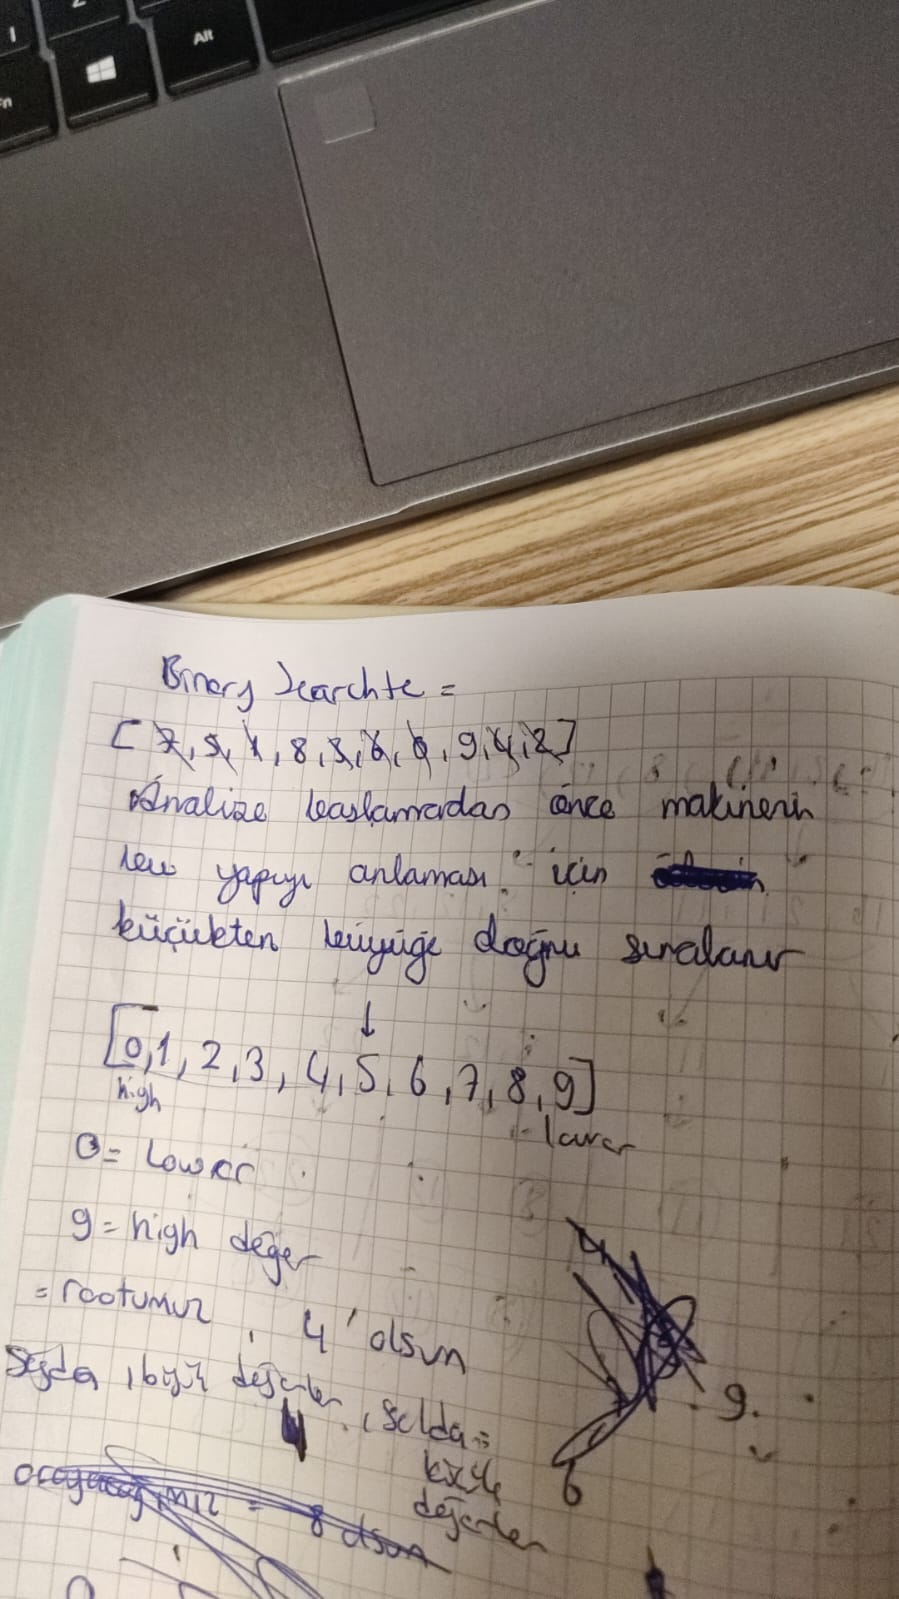 Alt
Binary Searchte =
[7, 5, 1, 8, 3, 6, 0, 9, 4, 2]
Analize başlamadan önce makinenin
bu yapıyı anlaması için
küçükten büyüğe doğru sıralanır
↓
[0,1, 2,3, 4,5, 6,7,8,9]
high
lower
0= Lower
9= high değer
= rootumuz, 4' olsun
Sağda, büyük değerler, Solda =
küçük
değerler
9.
6
= 8 olsun